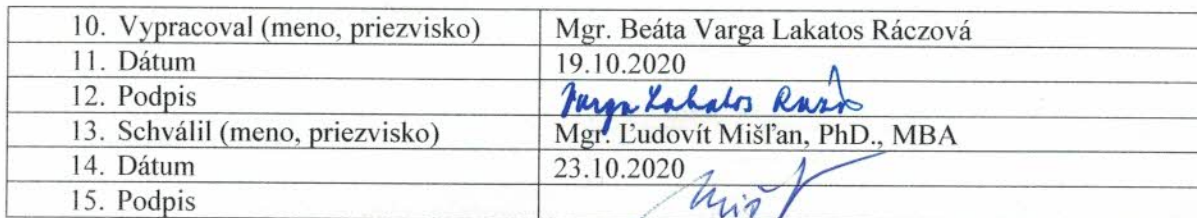 10. Vypracoval (meno, priezvisko) Mgr. Beáta Varga Lakatos Ráczová
11. Dátum 19.10.2020
12. Podpis Varga Lakatos
13. Schválil (meno, priezvisko) Mgr. Ľudovít Mišľan, PhD., MBA
14. Dátum 23.10.2020
15. Podpis